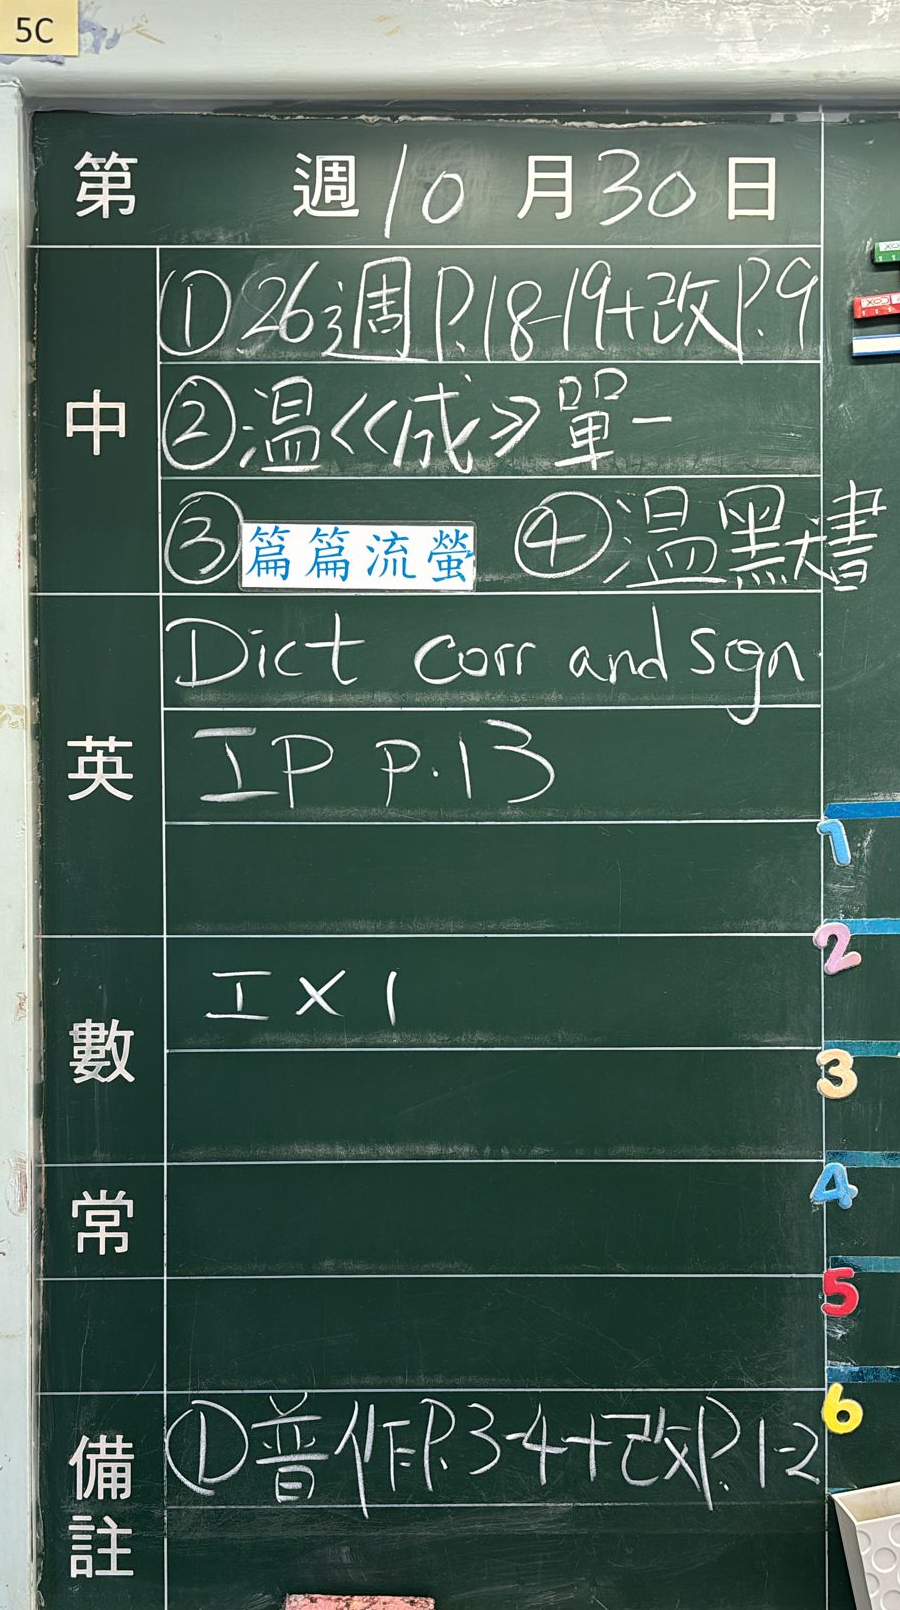 5C
第 週 10 月 30 日
中
① 26週 P.18-19+改 P.9
② 温<<成>>單一
③ 篇篇流螢 ④ 温默書
英
Dict corr and sgn
IP p.13
數
I X 1
常
備註
① 普作P.3-4+改P.1-2
1
2
3
4
5
6